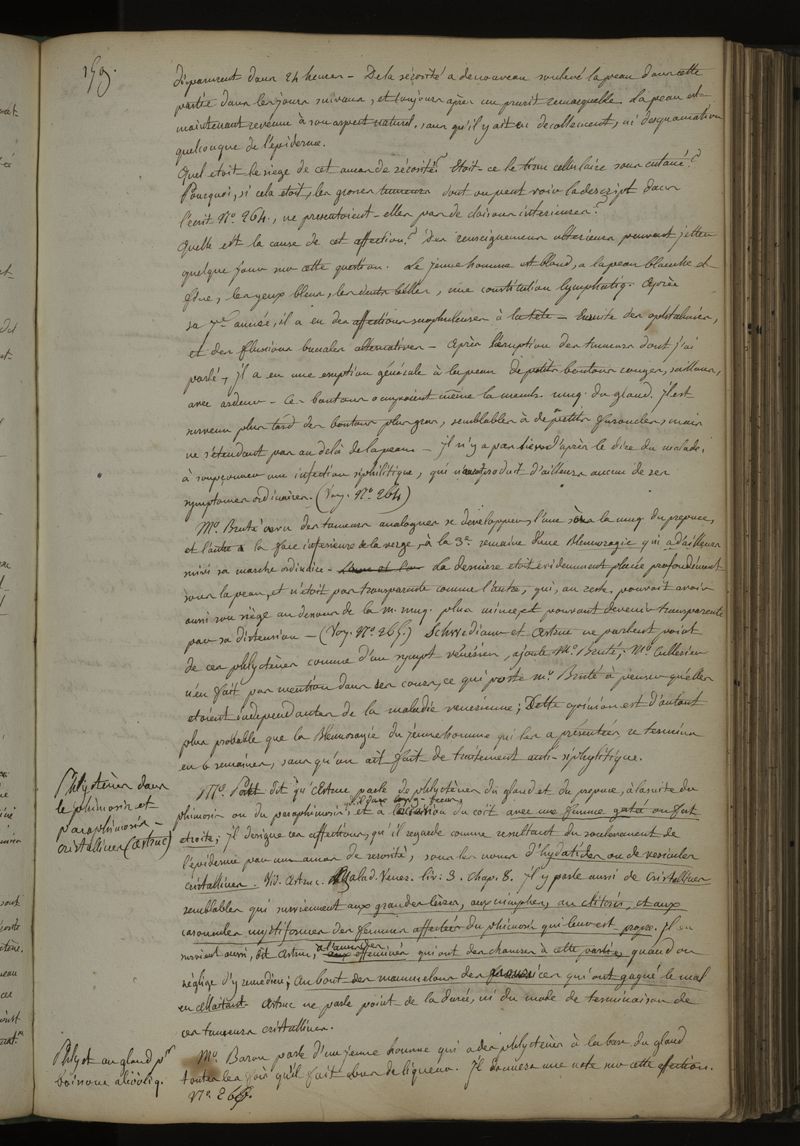 159.
disparurent dans 24 heures – De la sérosité a de nouveau soulevé la peau dans cette
partie dans les jours suivans, et toujours après un prurit remarquable. La peau est
maintenant revenue à son aspect naturel, sans qu'il y ait eu décollement, ni desquamation
quelconque de l'épiderme.
Quel étoit le siege de cet amas de sérosité? Etoit-ce le tissu cellulaire sous cutané??
Pourquoi, si cela étoit, les grosses tumeurs dont on peut voir la descript dans
l'écrit No. 264., ne presentoient-elles pas de cloisons interieures?
Quelle est la cause de cet affection? Des renseignemens ulterieurs peuvent jetter
quelque jour sur cette question. Le jeune homme est blond, a la peau blanche et
fine, les yeux bleus, les dents belles, une constitution lymphatiq. Après
sa année, il a eu des affections scrophuleuses à la tête – Ensuite des ophtalmies,
et des fluxions buccales alternatives – Après l'éruption des tumeurs dont j'ai
parlé, il a eu une eruption génerale à la peau de petits boutons rouges, saillans,
avec ardeur – Ces boutons occupoient même la memb. muq. du gland. Il est
survenu plus tard des boutons plus gros, semblables à de petits furoncles, mais
ne s'étendant pas au delà de la peau – Il n'y a pas lieu d'après le dire du malade,
à soupçonner une infection siphilitique, qui n'auroit produit d'ailleurs aucun de ses
symptomes ordinaires. (Voy. No. 264)
Mr. Bruté a vu des tumeurs analogues se developper, l'une sous la muq. du prepuce,
et l'autre à la face inferieure de la verge, à la 3e. semaine d'une Blennoragie qui a d'ailleurs
suivi sa marche ordinaire – La derniere etoit évidemment placée profondément
sous la peau, et n'étoit pas transparente comme l'autre, qui, au reste, pouvoit avoir
aussi son siège au dessous de la m. muq. plus mince et pouvant devenir transparente
par sa distension – (Voy. No. 265) Schwediaur et Astruc ne parlent point
de ces phlyctènes comme d'un sympt vénérien, ajoute Mr. Bruté; Mr. Cullerier
n'en fait pas mention dans ses cours, ce qui porte mr. Bruté à penser qu'elles
etoient independantes de la maladie venerienne; Cette opinion est d'autant
plus probable que la Blennoragie du jeune homme qui les a présentées se termina
en 6 semaines, sans qu'on ait fait de traitement anti-siphylitique.
Phlyctènes dans
le phimosis et
paraphimosis –
cristallines (Astruc)
Mr. Pott dit qu'Astruc parle de phlyctènes du gland et du prepuce, à la suite du
phimosis ou du paraphimosis, et à l'occasion du coït avec une femme gatée ou fort
etroite; il designe ces affections, qu'il regarde comme resultant du soulevement de
l'épiderme par un amas de serosité, sous les noms d'hydatides ou de vesicules
cristallines. Vid. Astruc. Malad. Vener. liv: 3. Chap. 8. Il y parle aussi de cristallines
semblables qui surviennent aux grandes lèvres, aux nimphes, au clitoris, et aux
caroncules myrtiformes des femmes affectées du phimosis qui leur est propre. Il en
survient aussi, dit Astruc, à l'anus des effeminés qui ont des chancres à cette partie, quand on
néglige d'y remedier; au bout des mammelons des nourrices qui ont gagné le mal
en allaitant. Astruc ne parle point de la durée, ni du mode de terminaison de
ces tumeurs cristallines.
Phlyct au gland pr
boissons alcooliq.
Mr. Baron parle d'un jeune homme qui a des phlyctènes à la base du gland
toutes les fois qu'il fait abus de liqueurs. Il donnera une note sur cette affection.
No. 266.